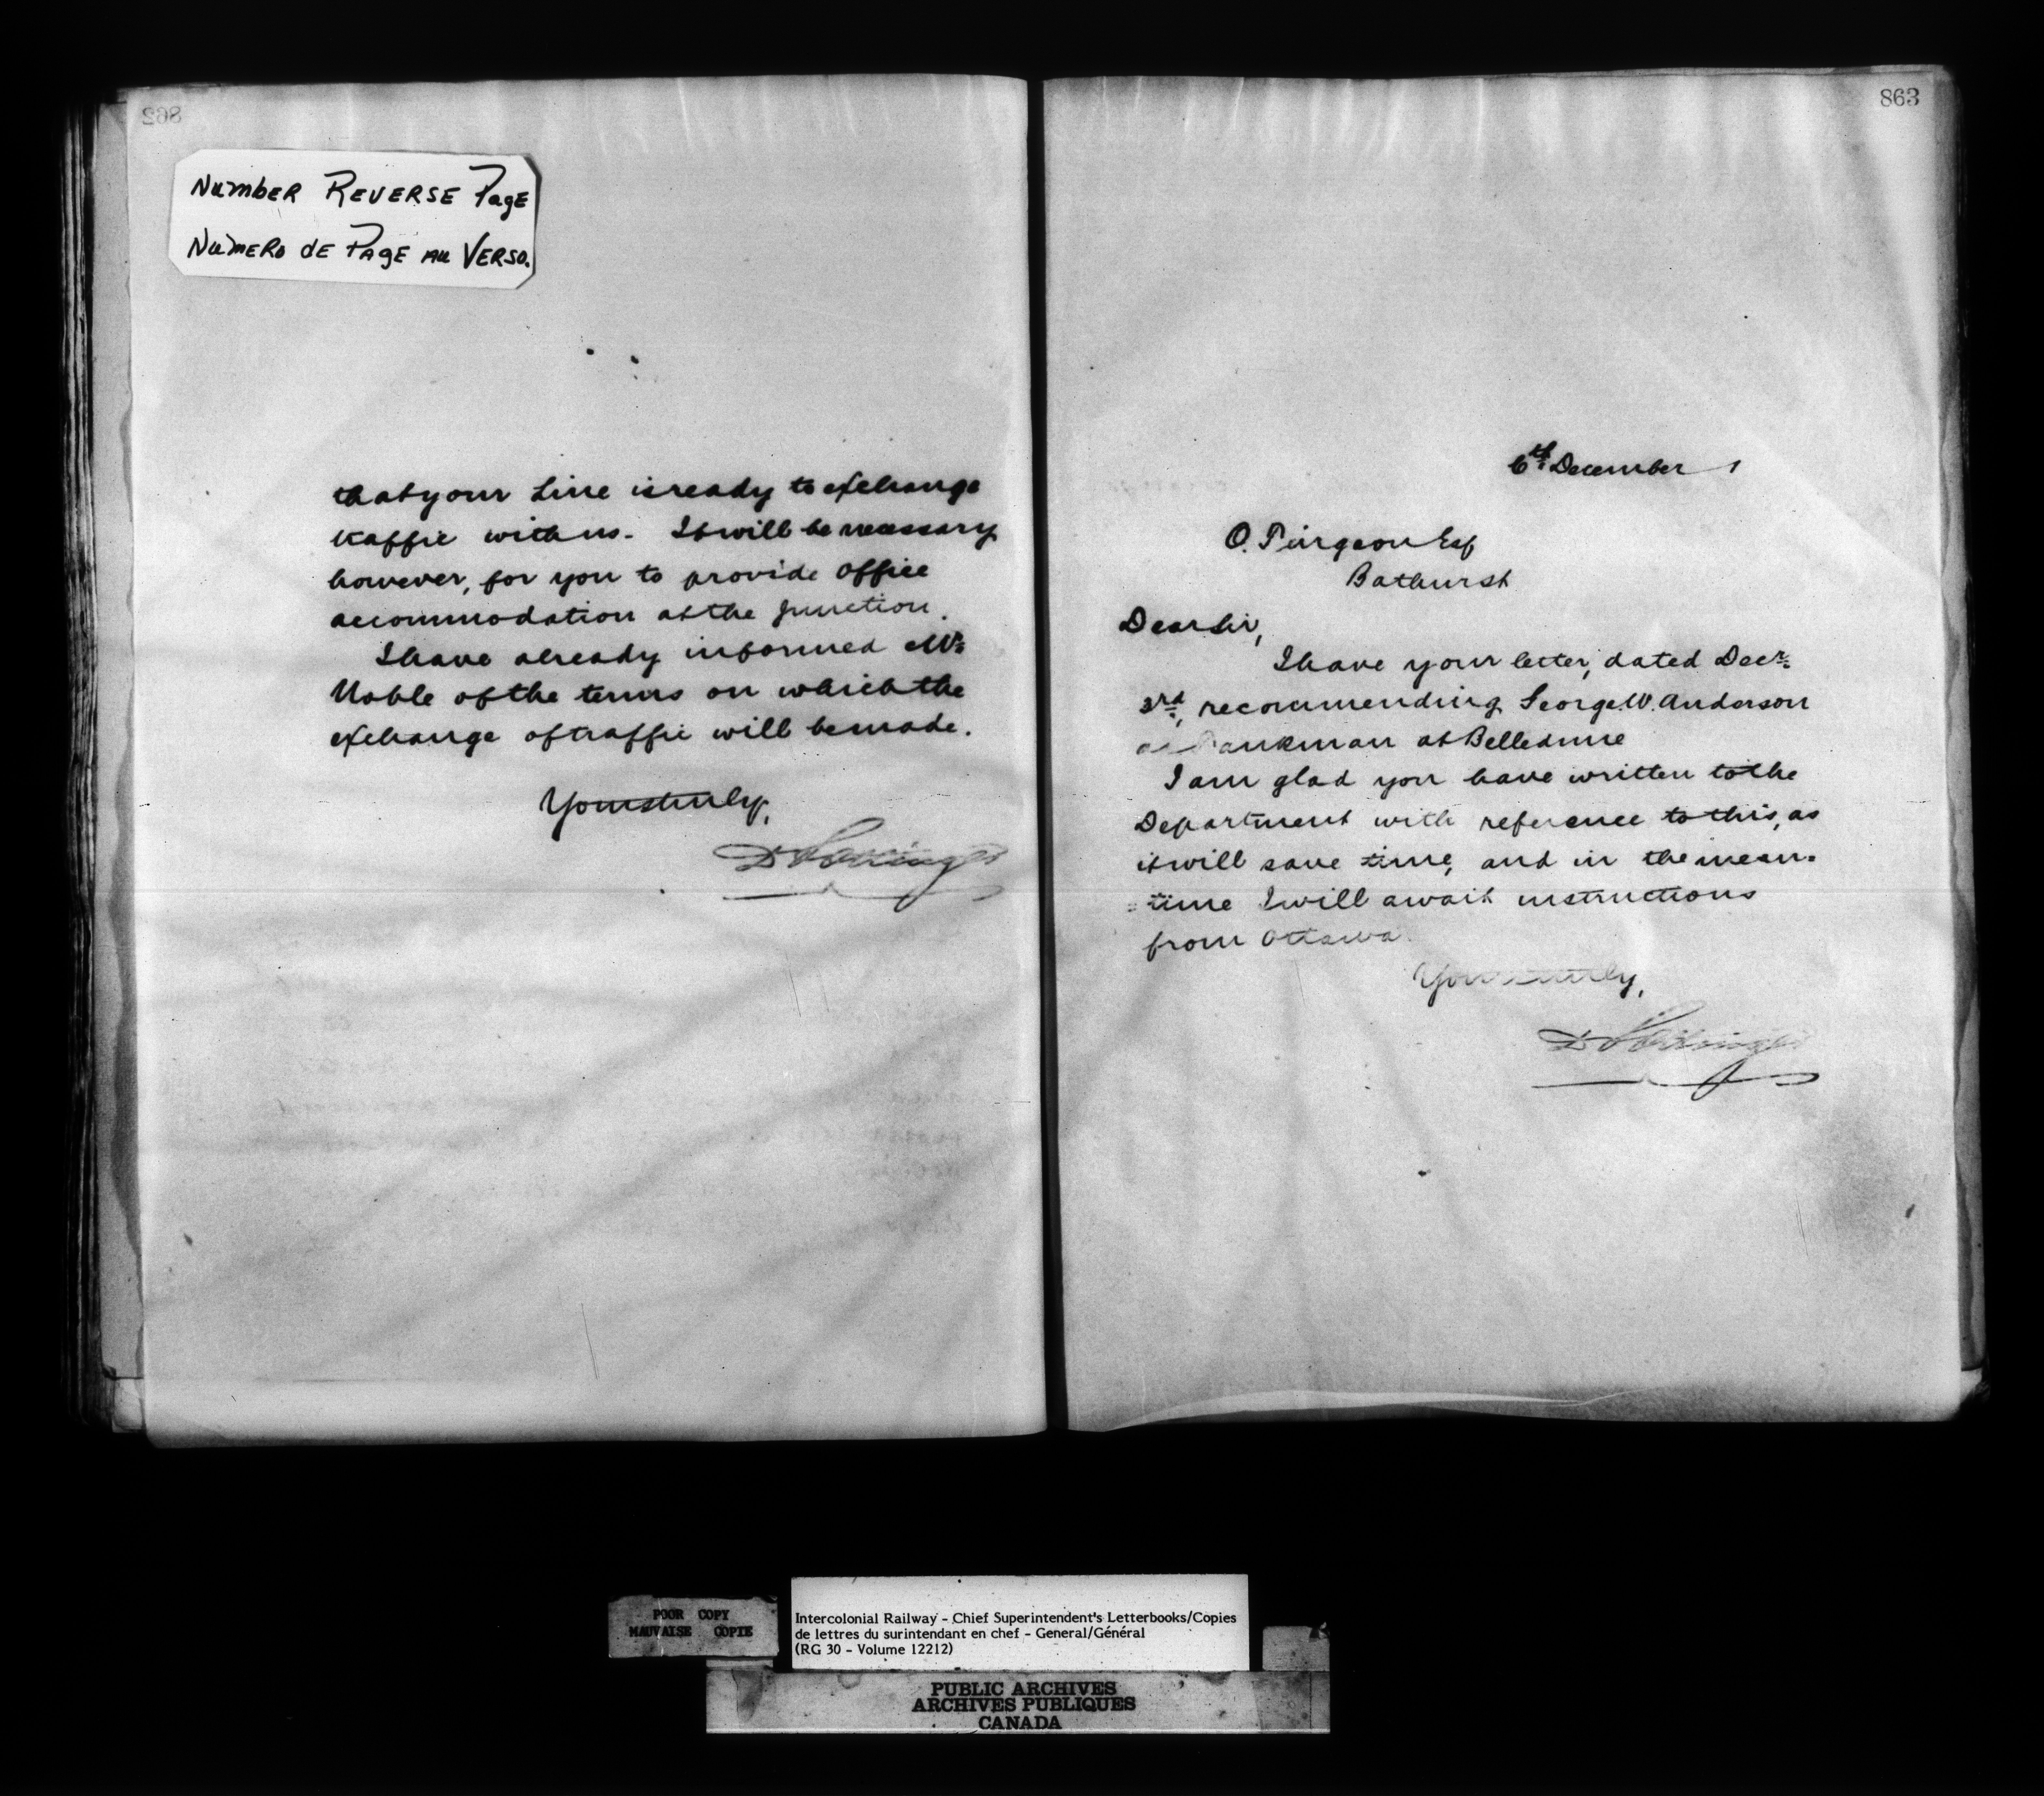 862
NUMBER REVERSE PAGE
NUMERO DE PAGE AU VERSO.
that your Line is ready to exchange
traffic with us. It will be necessary
however, for you to provide office
accommodation at the Junction.
I have already informed Mr.
Noble of the terms on which the
exchange of traffic will be made.
Yours truly,
D Pottinger
863
6th December 1
O. Turgeon Esq
Bathurst
Dear Sir,
I have your letter, dated Decr.
3rd, recommending George W. Anderson
as Tankman at Belledune
I am glad you have written to the
Department with reference to this, as
it will save time, and in the mean-
=time I will await instructions
from Ottawa.
Yours truly,
D Pottinger
POOR COPY
MAUVAISE COPIE
Intercolonial Railway - Chief Superintendent's Letterbooks/Copies
de lettres du surintendant en chef - General/Général
(RG 30 - Volume 12212)
PUBLIC ARCHIVES
ARCHIVES PUBLIQUES
CANADA